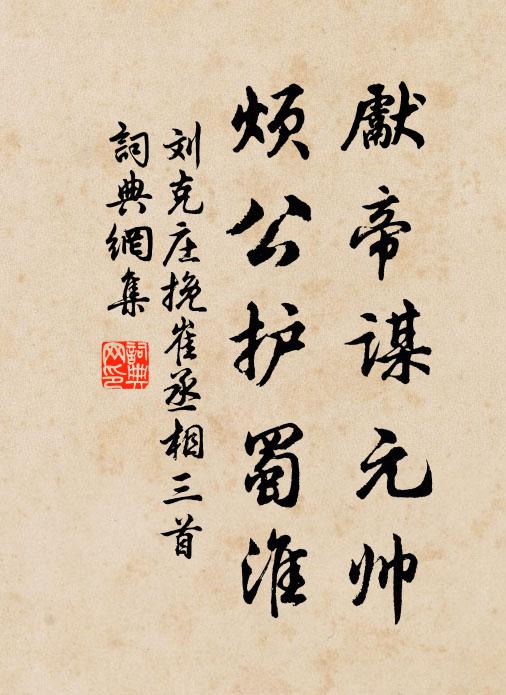 獻帝謀元帅
烦公护蜀淮
刘克庄挽崔丞相三首
詞典網集
詞典网印